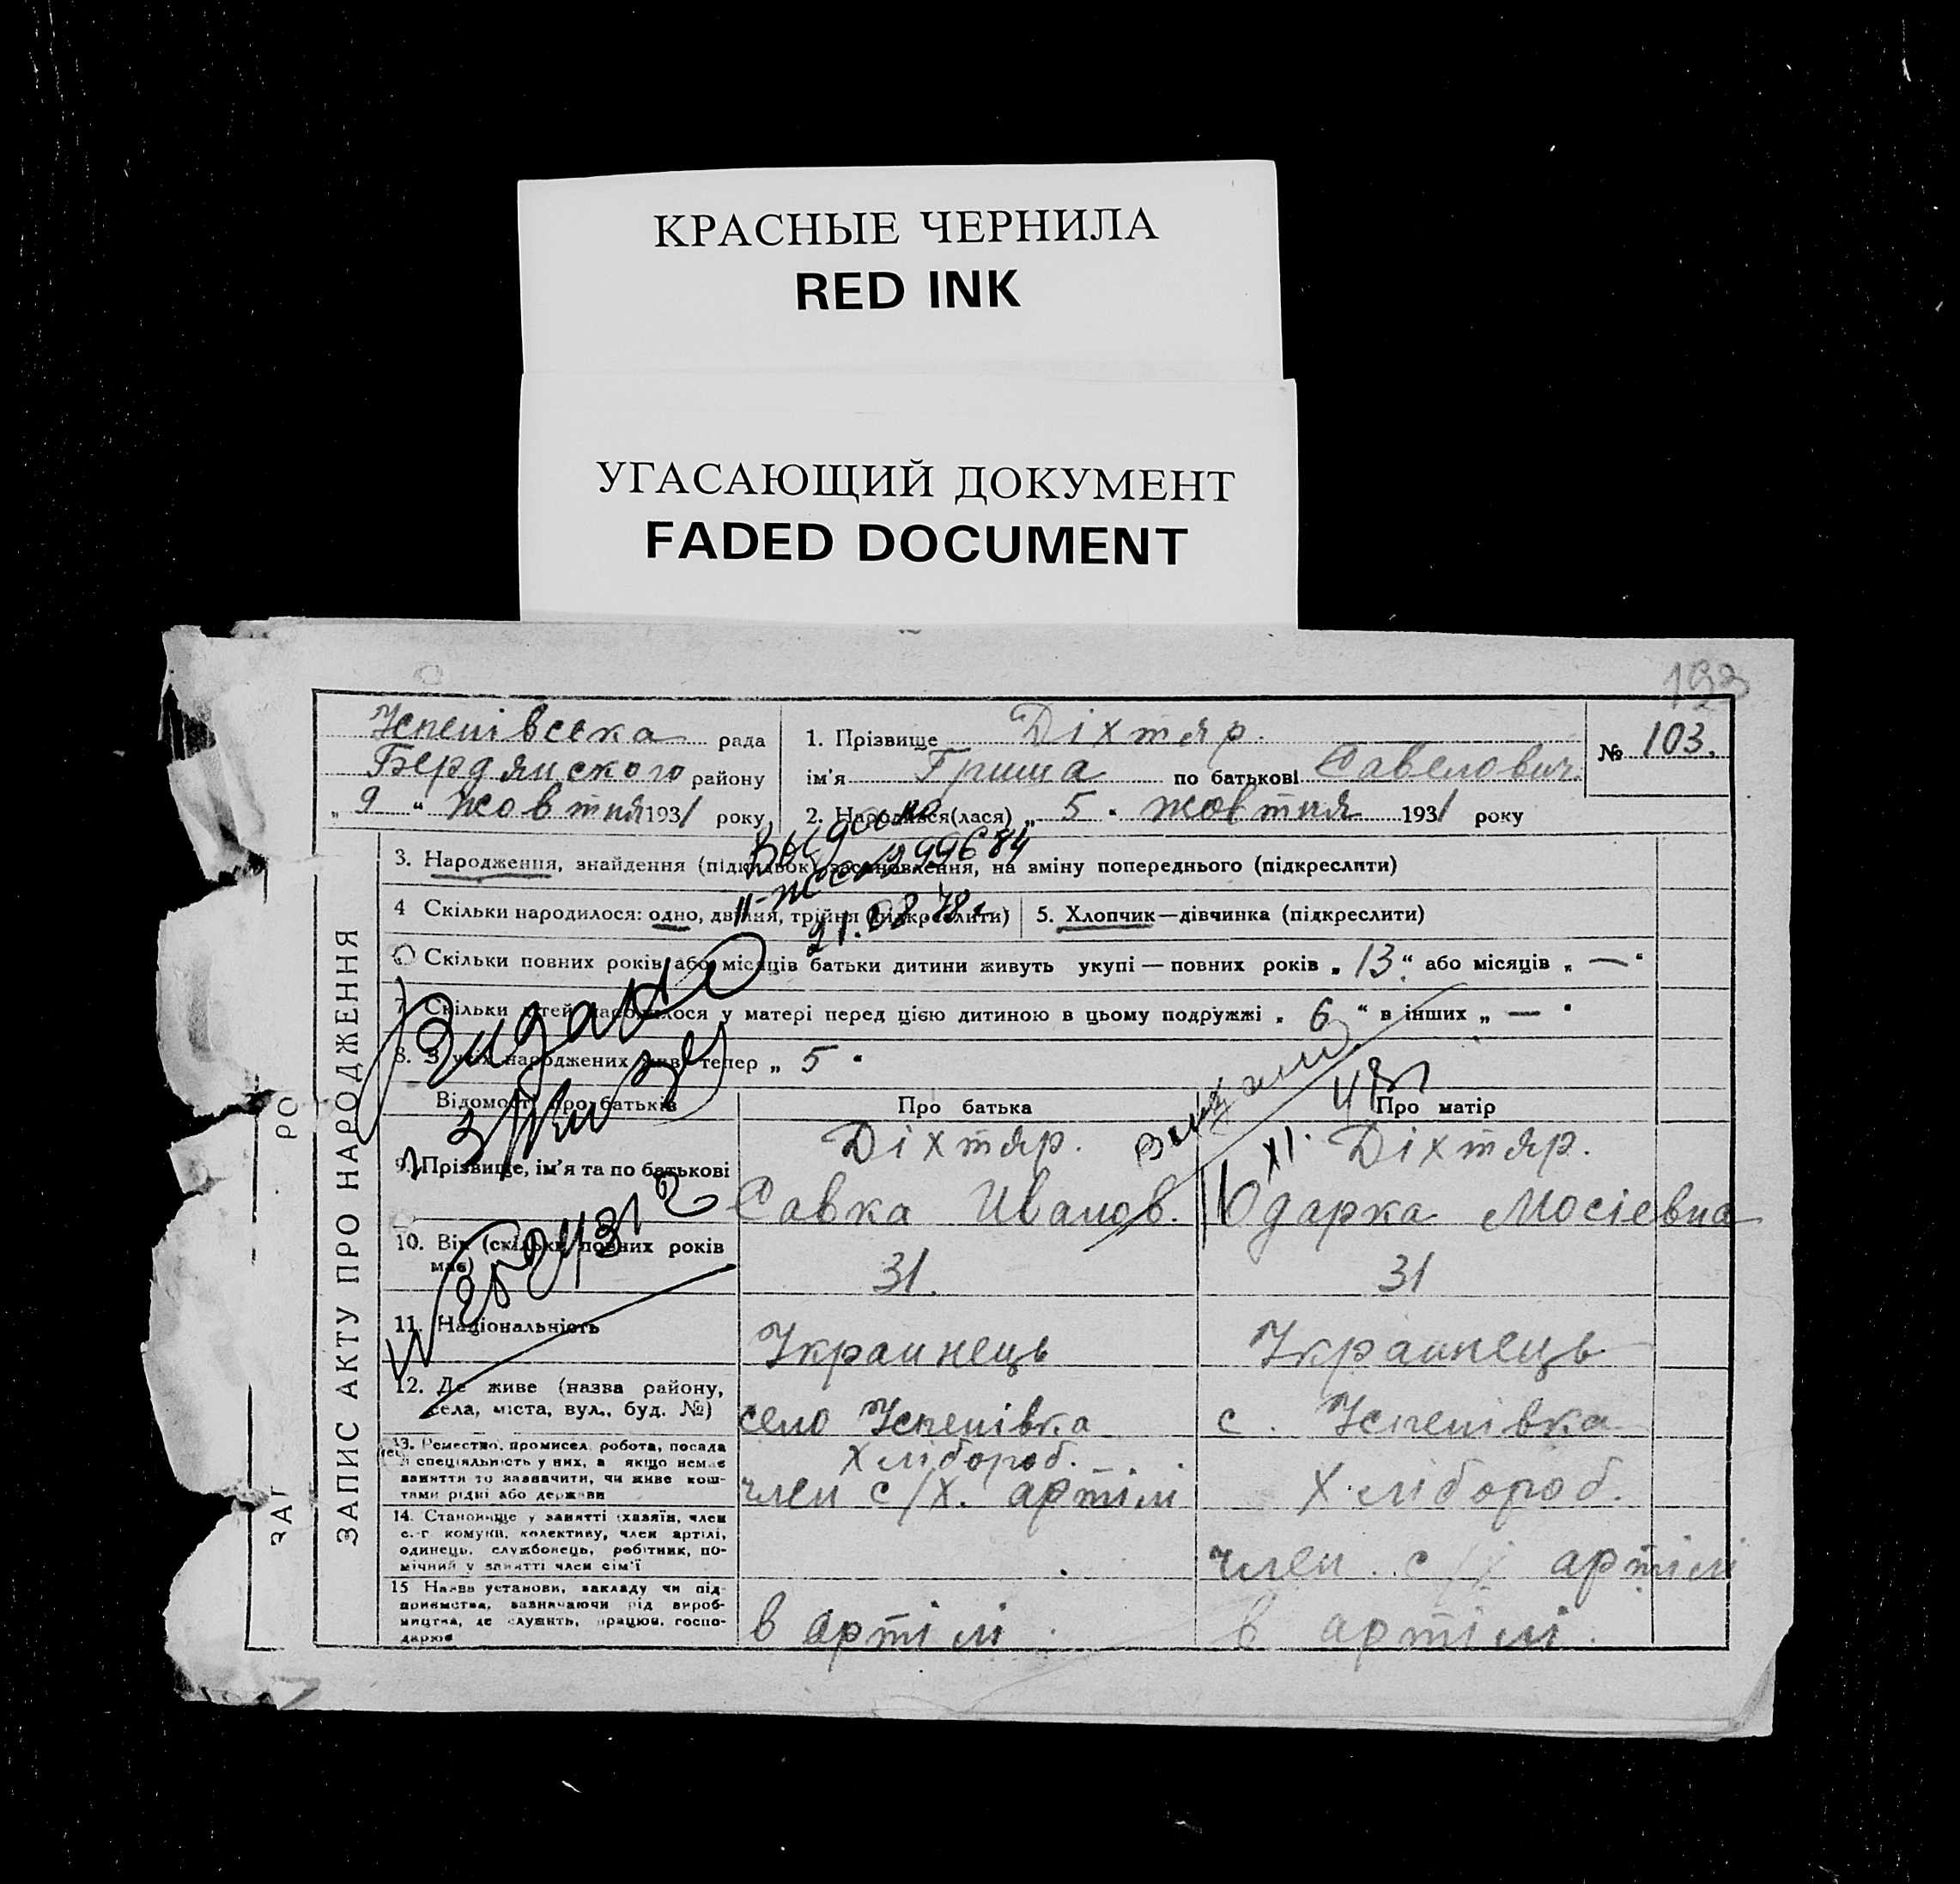 КРАСНЫЕ ЧЕРНИЛА
RED INK
УГАСАЮЩИЙ ДОКУМЕНТ
FADED DOCUMENT
193
Успенівська рада
Бердянского району
„ 9 “ жовтня 1931 року
1. Прізвище Діхтяр.
ім'я Гриша по батькові Савелович.
2. Народився(лася) „ 5 " жовтня 1931 року
№ 103.
ЗАПИС АКТУ ПРО НАРОДЖЕННЯ
3. Народження, знайдення (підкидьок) застановлення, на зміну попереднього (підкреслити)
4 Скільки народилося: одно, двійня, трійня (підкреслити)
5. Хлопчик—дівчинка (підкреслити)
Скільки повних років або місяців батьки дитини живуть укупі — повних років „ 13 “ або місяців „ — “
7. Скільки дітей народилося у матері перед цією дитиною в цьому подружжі „ 6 “ в інших „ — "
8. З усіх народжених живі тепер „ 5 "
21.08.78г
Видано
Відомості про батьків
Про батька
Про матір
9. Прізвище, ім'я та по батькові
Діхтяр.
Савка Иванов.
Діхтяр.
Одарка Мосіевна
10. Вік (скільки повних років має)
31.
31
11. Національність
Украинець
Украинець
12. Де живе (назва району,
села, міста, вул., буд. №)
село Успенівка
с. Успенівка
13. Ремество, промисел, робота, посада
й спеціяльність у них, а якщо немає
заняття то зазначити, чи живе кош-
тами рідні або держави
Хлібороб.
член с/х. артілі
Хлібороб.
14. Становище у занятті (хазяїн, член
с.-г. комуни, колективу, член артілі,
одинець, службовець, робітник, по-
мічний у занятті член сім'ї
член с/х артілі
15 Назва установи, закладу чи під-
приємства, зазначаючи рід вироб-
ництва, де служить, працює, госпо-
дарює
в артілі
в артілі.